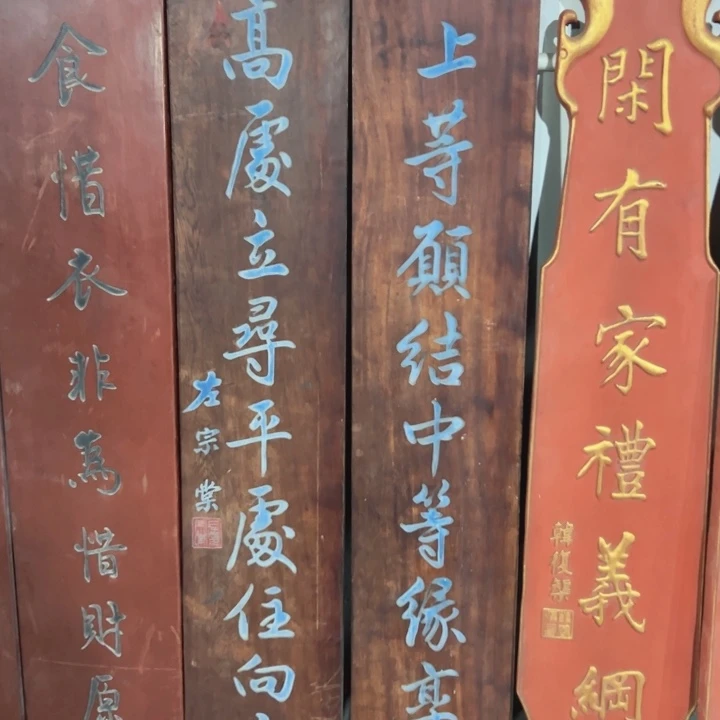 閑有家禮義綱
韓復榘
上等願結中等緣享
高處立尋平處住向
左宗棠
食惜衣非為惜財原